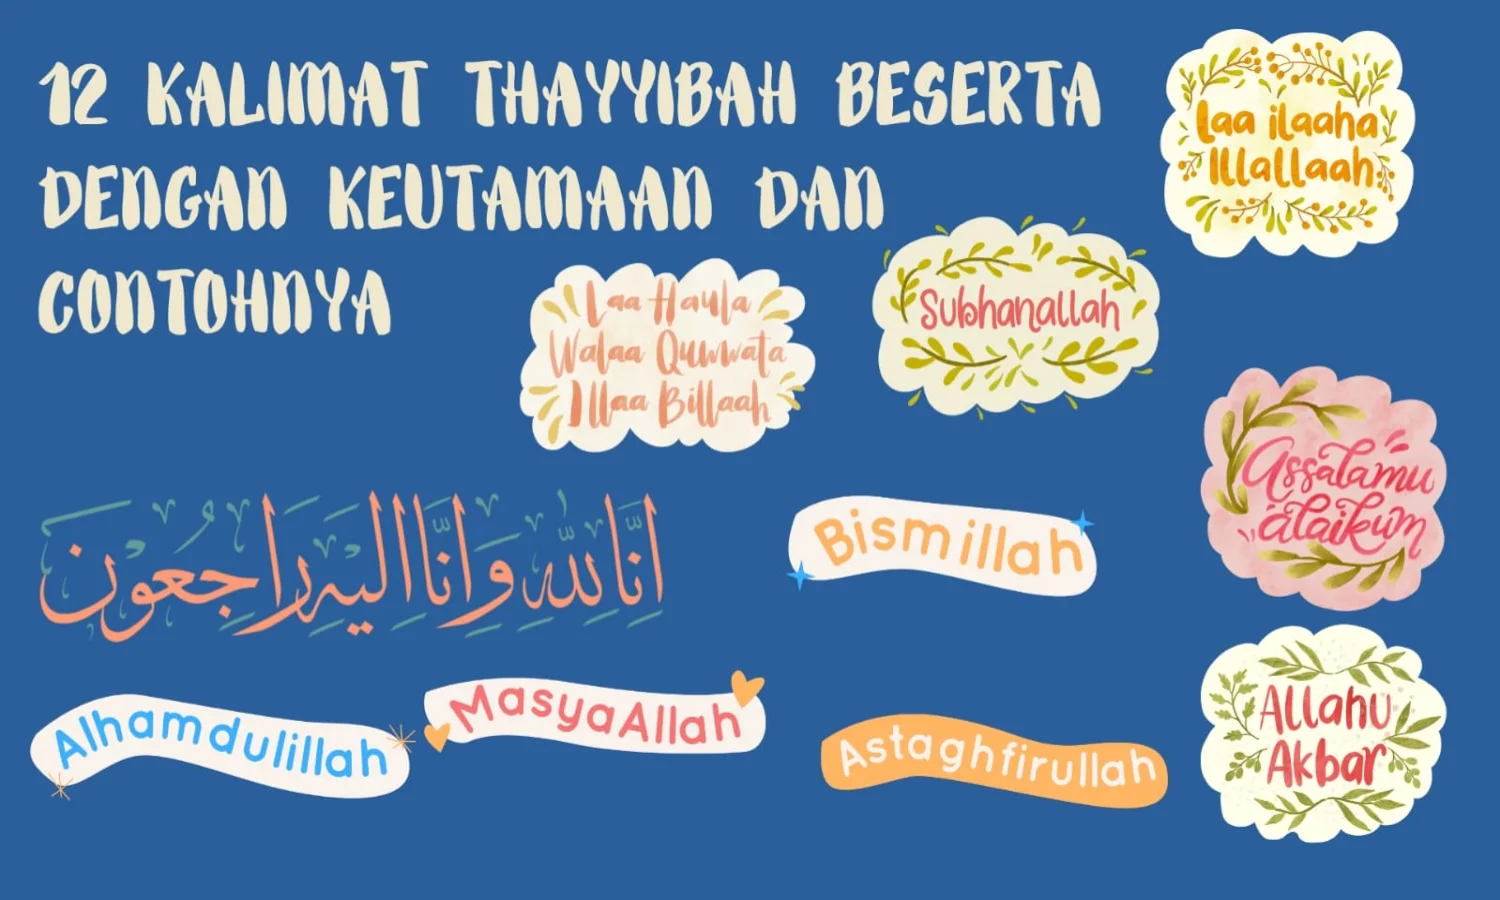 12 KALIMAT THAYYIBAH BESERTA
DENGAN KEUTAMAAN DAN
CONTOHNYA
Laa ilaaha
Illallaah
Subhanallah
Laa Haula
Walaa Quwwata
Illaa Billaah
Assalamu
'alaikum
اِنَّا لِلّٰهِ وَاِنَّا اِلَيْهِ رَاجِعُوْنَ
Bismillah
Alhamdulillah
MasyaAllah
Astaghfirullah
Allahu
Akbar